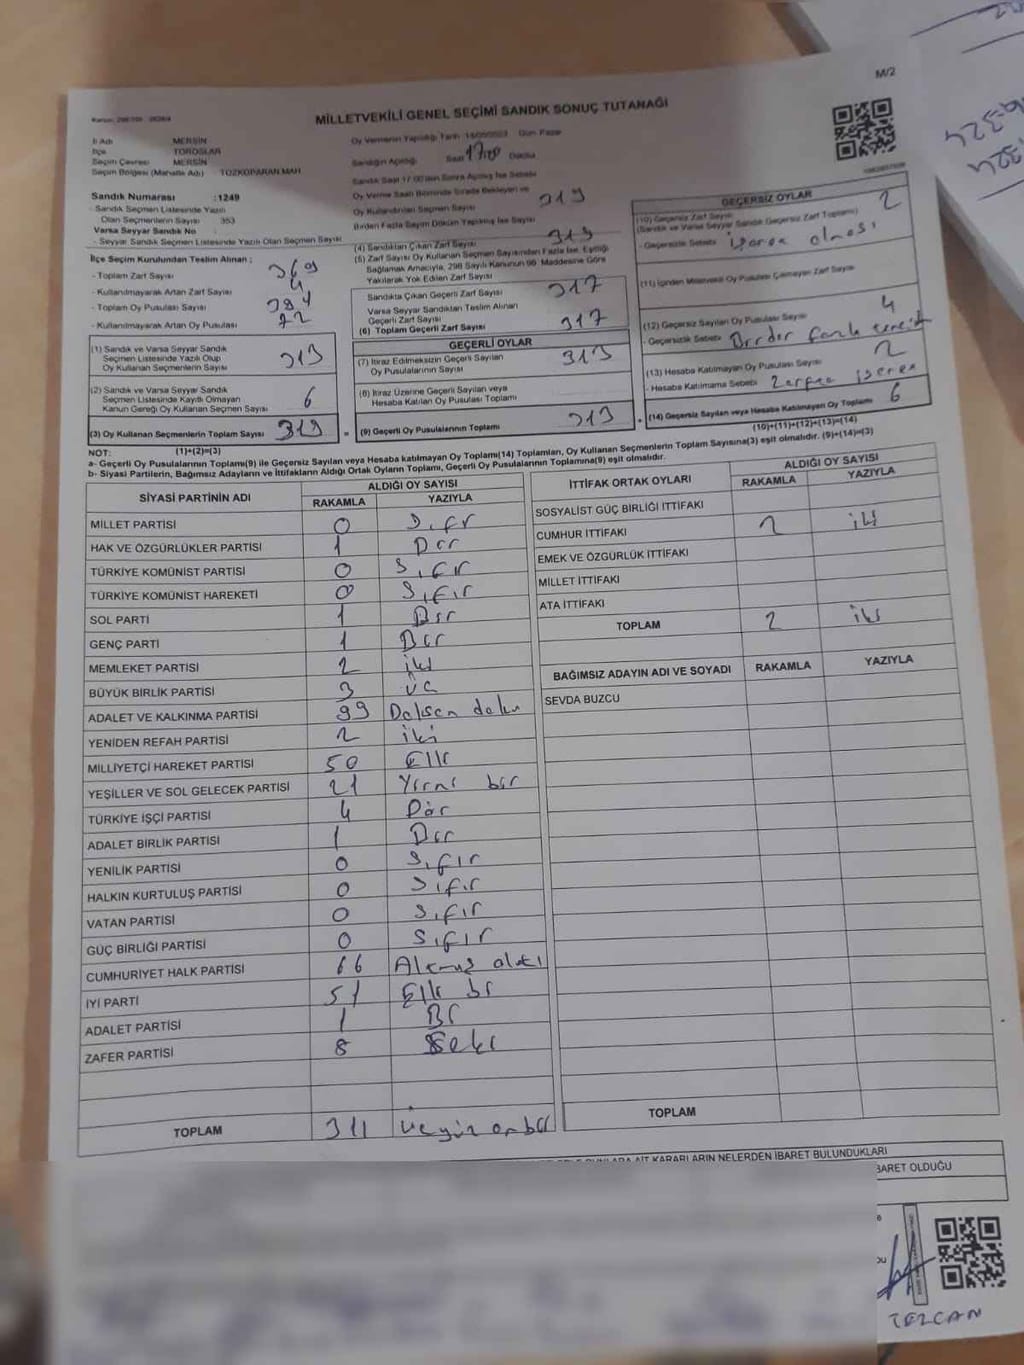 M/2
MİLLETVEKİLİ GENEL SEÇİMİ SANDIK SONUÇ TUTANAĞI
İl Adı MERSİN
İlçe TOROSLAR
Seçim Çevresi MERSİN
Seçim Bölgesi (Mahalle Adı) TOZKOPARAN MAH.
Sandık Numarası : 1249
- Sandık Seçmen Listesinde Yazılı
Olan Seçmenlerin Sayısı 353
Varsa Seyyar Sandık No
- Seyyar Sandık Seçmen Listesinde Yazılı Olan Seçmen Sayısı
İlçe Seçim Kurulundan Teslim Alınan ;
- Toplam Zarf Sayısı 369
- Kullanılmayarak Artan Zarf Sayısı
- Toplam Oy Pusulası Sayısı
- Kullanılmayarak Artan Oy Pusulası 72
(1) Sandık ve Varsa Seyyar Sandık
Seçmen Listesinde Yazılı Olup
Oy Kullanan Seçmenlerin Sayısı 313
(2) Sandık ve Varsa Seyyar Sandık
Seçmen Listesinde Kayıtlı Olmayan
Kanun Gereği Oy Kullanan Seçmen Sayısı 6
(3) Oy Kullanan Seçmenlerin Toplam Sayısı 319
(1)+(2)=(3)
Oy Vermenin Yapıldığı Tarih Gün Pazar
Sandığın Açılışı Saat 17:00 Dakika
Sandık Saat 17:00'den Sonra Açılmış İse Sebebi
Oy Verme Saati Bitiminde Sırada Bekleyen ve
Oy Kullandırılan Seçmen Sayısı 319
Birden Fazla Sayım Döküm Yapılmış İse Sayısı
(4) Sandıktan Çıkan Zarf Sayısı 319
(5) Zarf Sayısı Oy Kullanan Seçmen Sayısından Fazla İse, Eşitliği
Sağlamak Amacıyla, 298 Sayılı Kanunun 98. Maddesine Göre
Yakılarak Yok Edilen Zarf Sayısı
Sandıkta Çıkan Geçerli Zarf Sayısı 317
Varsa Seyyar Sandıktan Teslim Alınan
Geçerli Zarf Sayısı
(6) Toplam Geçerli Zarf Sayısı 317
GEÇERLİ OYLAR
(7) İtiraz Edilmeksizin Geçerli Sayılan
Oy Pusulalarının Sayısı 313
(8) İtiraz Üzerine Geçerli Sayılan veya
Hesaba Katılan Oy Pusulası Toplamı
(9) Geçerli Oy Pusulalarının Toplamı 313
GEÇERSİZ OYLAR
(10) Geçersiz Zarf Sayısı 2
(Sandık ve Varsa Seyyar Sandık Geçersiz Zarf Toplamı)
- Geçersizlik Sebebi İşaret olması
(11) İçinden Milletvekili Oy Pusulası Çıkmayan Zarf Sayısı
(12) Geçersiz Sayılan Oy Pusulası Sayısı 4
- Geçersizlik Sebebi Birden fazla tercih
(13) Hesaba Katılmayan Oy Pusulası Sayısı 2
- Hesaba Katılmama Sebebi
(14) Geçersiz Sayılan veya Hesaba Katılmayan Oy Toplamı 6
(10)+(11)+(12)+(13)=(14)
NOT:
a- Geçerli Oy Pusulalarının Toplamı(9) ile Geçersiz Sayılan veya Hesaba katılmayan Oy Toplamı(14) Toplamları, Oy Kullanan Seçmenlerin Toplam Sayısına(3) eşit olmalıdır. (9)+(14)=(3)
b- Siyasi Partilerin, Bağımsız Adayların ve İttifakların Aldığı Ortak Oyların Toplamı, Geçerli Oy Pusulalarının Toplamına(9) eşit olmalıdır.
SİYASİ PARTİNİN ADI ALDIĞI OY SAYISI
RAKAMLA YAZIYLA
MİLLET PARTİSİ 0 Sıfır
HAK VE ÖZGÜRLÜKLER PARTİSİ 1 Bir
TÜRKİYE KOMÜNİST PARTİSİ 0 Sıfır
TÜRKİYE KOMÜNİST HAREKETİ 0 Sıfır
SOL PARTİ 1 Bir
GENÇ PARTİ 1 Bir
MEMLEKET PARTİSİ 2 iki
BÜYÜK BİRLİK PARTİSİ 3 üç
ADALET VE KALKINMA PARTİSİ 99 Doksan dokuz
YENİDEN REFAH PARTİSİ 2 iki
MİLLİYETÇİ HAREKET PARTİSİ 50 Elli
YEŞİLLER VE SOL GELECEK PARTİSİ 21 Yirmi bir
TÜRKİYE İŞÇİ PARTİSİ 4 Dör
ADALET BİRLİK PARTİSİ 1 Bir
YENİLİK PARTİSİ 0 Sıfır
HALKIN KURTULUŞ PARTİSİ 0 Sıfır
VATAN PARTİSİ 0 Sıfır
GÜÇ BİRLİĞİ PARTİSİ 0 Sıfır
CUMHURİYET HALK PARTİSİ 66 Altmış altı
İYİ PARTİ 51 Elli bir
ADALET PARTİSİ 1 Bir
ZAFER PARTİSİ 8 Sekiz
TOPLAM 311 üçyüz onbir
İTTİFAK ORTAK OYLARI ALDIĞI OY SAYISI
RAKAMLA YAZIYLA
SOSYALİST GÜÇ BİRLİĞİ İTTİFAKI
CUMHUR İTTİFAKI 2 iki
EMEK VE ÖZGÜRLÜK İTTİFAKI
MİLLET İTTİFAKI
ATA İTTİFAKI
TOPLAM 2 iki
BAĞIMSIZ ADAYIN ADI VE SOYADI RAKAMLA YAZIYLA
SEVDA BUZCU
TOPLAM
AİT KARARLARIN NELERDEN İBARET BULUNDUKLARI
BARET OLDUĞU
TEZCAN